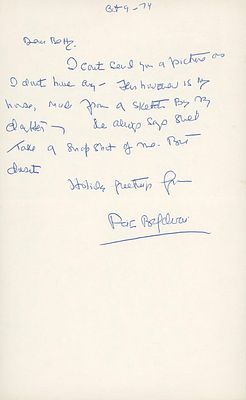 Oct 9 - 74
Dear Betty.
I cant send you a picture as
I dont have any - This however is my
house, made from a sketch By my
daughter She always says She'd
Take a snapshot of me. But
doesnt
Holiday greetings from